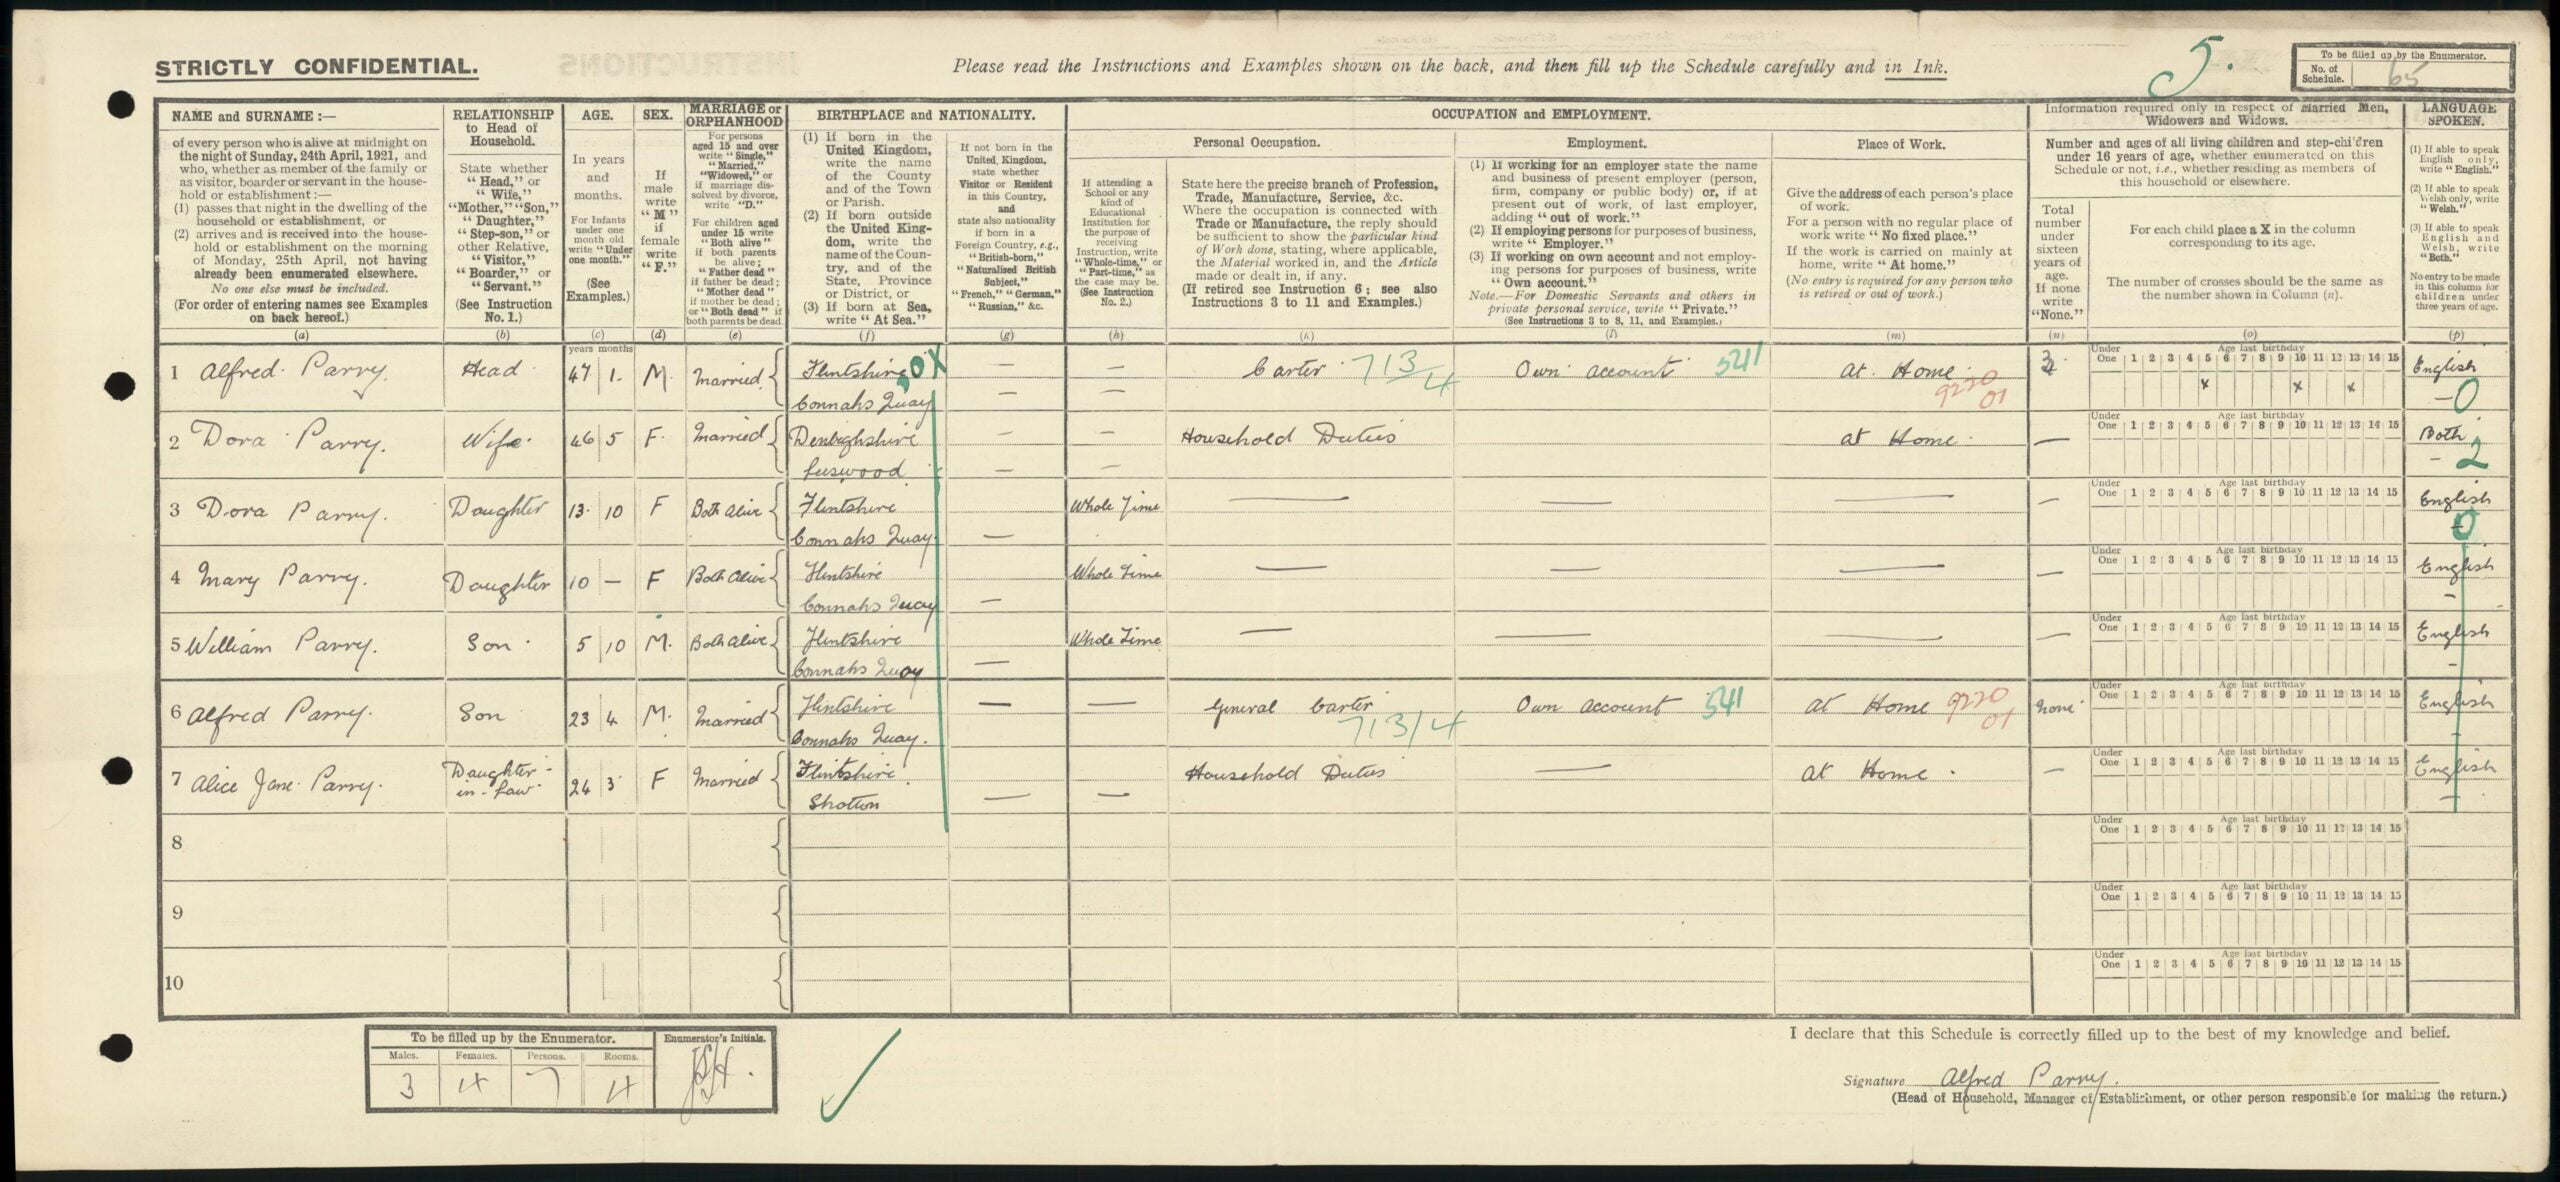 STRICTLY CONFIDENTIAL.
Please read the Instructions and Examples shown on the back, and then fill up the Schedule carefully and in Ink.
5.
To be filled up by the Enumerator.
No. of Schedule. 65
NAME and SURNAME :—
of every person who is alive at midnight on
the night of Sunday, 24th April, 1921, and
who, whether as member of the family or
as visitor, boarder or servant in the house-
hold or establishment :—
(1) passes that night in the dwelling of the
household or establishment, or
(2) arrives and is received into the house-
hold or establishment on the morning
of Monday, 25th April, not having
already been enumerated elsewhere.
No one else must be included.
(For order of entering names see Examples
on back hereof.)
(a)
RELATIONSHIP
to Head of
Household.
State whether
"Head," or
"Wife,"
"Mother," "Son,"
"Daughter,"
"Step-son," or
other Relative,
"Visitor,"
"Boarder," or
"Servant."
(See Instruction
No. 1.)
(b)
AGE.
In years
and
months.
For Infants
under one
month old
write "Under
one month."
(See
Examples.)
(c)
SEX.
If
male
write
"M"
if
female
write
"F."
(d)
MARRIAGE or
ORPHANHOOD
For persons
aged 15 and over
write "Single,"
"Married,"
"Widowed," or
if marriage dis-
solved by divorce,
write "D."
For children aged
under 15 write
"Both alive"
if both parents
be alive;
"Father dead"
if father be dead;
"Mother dead"
if mother be dead;
or "Both dead" if
both parents be dead.
(e)
BIRTHPLACE and NATIONALITY.
(1) If born in the
United Kingdom,
write the name
of the County
and of the Town
or Parish.
(2) If born outside
the United King-
dom, write the
name of the Coun-
try, and of the
State, Province
or District, or
(3) If born at Sea,
write "At Sea."
(f)
If not born in the
United Kingdom,
state whether
Visitor or Resident
in this Country,
and
state also nationality
if born in a
Foreign Country, e.g.,
"British-born,"
"Naturalised British
Subject,"
"French," "German,"
"Russian," &c.
(g)
OCCUPATION and EMPLOYMENT.
If attending a
School or any
kind of
Educational
Institution for
the purpose of
receiving
Instruction, write
"Whole-time," or
"Part-time," as
the case may be.
(See Instruction
No. 2.)
(h)
Personal Occupation.
State here the precise branch of Profession,
Trade, Manufacture, Service, &c.
Where the occupation is connected with
Trade or Manufacture, the reply should
be sufficient to show the particular kind
of Work done, stating, where applicable,
the Material worked in, and the Article
made or dealt in, if any.
(If retired see Instruction 6; see also
Instructions 3 to 11 and Examples.)
(k)
Employment.
(1) If working for an employer state the name
and business of present employer (person,
firm, company or public body) or, if at
present out of work, of last employer,
adding "out of work."
(2) If employing persons for purposes of business,
write "Employer."
(3) If working on own account and not employ-
ing persons for purposes of business, write
"Own account."
Note.—For Domestic Servants and others in
private personal service, write "Private."
(See Instructions 3 to 8, 11, and Examples.)
(l)
Place of Work.
Give the address of each person's place
of work.
For a person with no regular place of
work write "No fixed place."
If the work is carried on mainly at
home, write "At home."
(No entry is required for any person who
is retired or out of work.)
(m)
Information required only in respect of Married Men,
Widowers and Widows.
Number and ages of all living children and step-children
under 16 years of age, whether enumerated on this
Schedule or not, i.e., whether residing as members of
this household or elsewhere.
Total
number
under
sixteen
years of
age.
If none
write
"None."
(n)
For each child place a X in the column
corresponding to its age.
The number of crosses should be the same as
the number shown in Column (n).
(o)
LANGUAGE
SPOKEN.
(1) If able to speak
English only,
write "English."
(2) If able to speak
Welsh only, write
"Welsh."
(3) If able to speak
English and
Welsh, write
"Both."
No entry to be made
in this column for
children under
three years of age.
(p)
years months
Age last birthday
Under One 1 2 3 4 5 6 7 8 9 10 11 12 13 14 15
1 Alfred Parry. Head 47 1. M. Married Flintshire 50X — — Carter 713/4 Own account 5411 At Home 9220 01 3 x x x English
Connahs Quay — — –0
Age last birthday
Under One 1 2 3 4 5 6 7 8 9 10 11 12 13 14 15
2 Dora Parry. Wife 46 5 F. Married Denbighshire — — Household Duties at Home — Both
Leeswood — — – 2
Age last birthday
Under One 1 2 3 4 5 6 7 8 9 10 11 12 13 14 15
3 Dora Parry. Daughter 13 10 F Both Alive Flintshire Whole Time — — — — English
Connahs Quay. — 0
Age last birthday
Under One 1 2 3 4 5 6 7 8 9 10 11 12 13 14 15
4 Mary Parry. Daughter 10 — F Both Alive Flintshire Whole Time — — — — English
Connahs Quay — –
Age last birthday
Under One 1 2 3 4 5 6 7 8 9 10 11 12 13 14 15
5 William Parry. Son 5 10 M. Both Alive Flintshire Whole Time — — — — English
Connahs Quay — –
Age last birthday
Under One 1 2 3 4 5 6 7 8 9 10 11 12 13 14 15
6 Alfred Parry. Son 23 4 M. Married Flintshire — — General Carter 713/4 Own account 5411 at Home 9220 01 None English
Connahs Quay. –
Age last birthday
Under One 1 2 3 4 5 6 7 8 9 10 11 12 13 14 15
7 Alice Jane Parry. Daughter-in-Law 24 3 F Married Flintshire Household Duties — at Home — English
Shotton — — –
Age last birthday
Under One 1 2 3 4 5 6 7 8 9 10 11 12 13 14 15
8
Age last birthday
Under One 1 2 3 4 5 6 7 8 9 10 11 12 13 14 15
9
Age last birthday
Under One 1 2 3 4 5 6 7 8 9 10 11 12 13 14 15
10
To be filled up by the Enumerator.
Males. Females. Persons. Rooms.
3 4 7 4
Enumerator's Initials.
I declare that this Schedule is correctly filled up to the best of my knowledge and belief.
Signature Alfred Parry.
(Head of Household, Manager of Establishment, or other person responsible for making the return.)